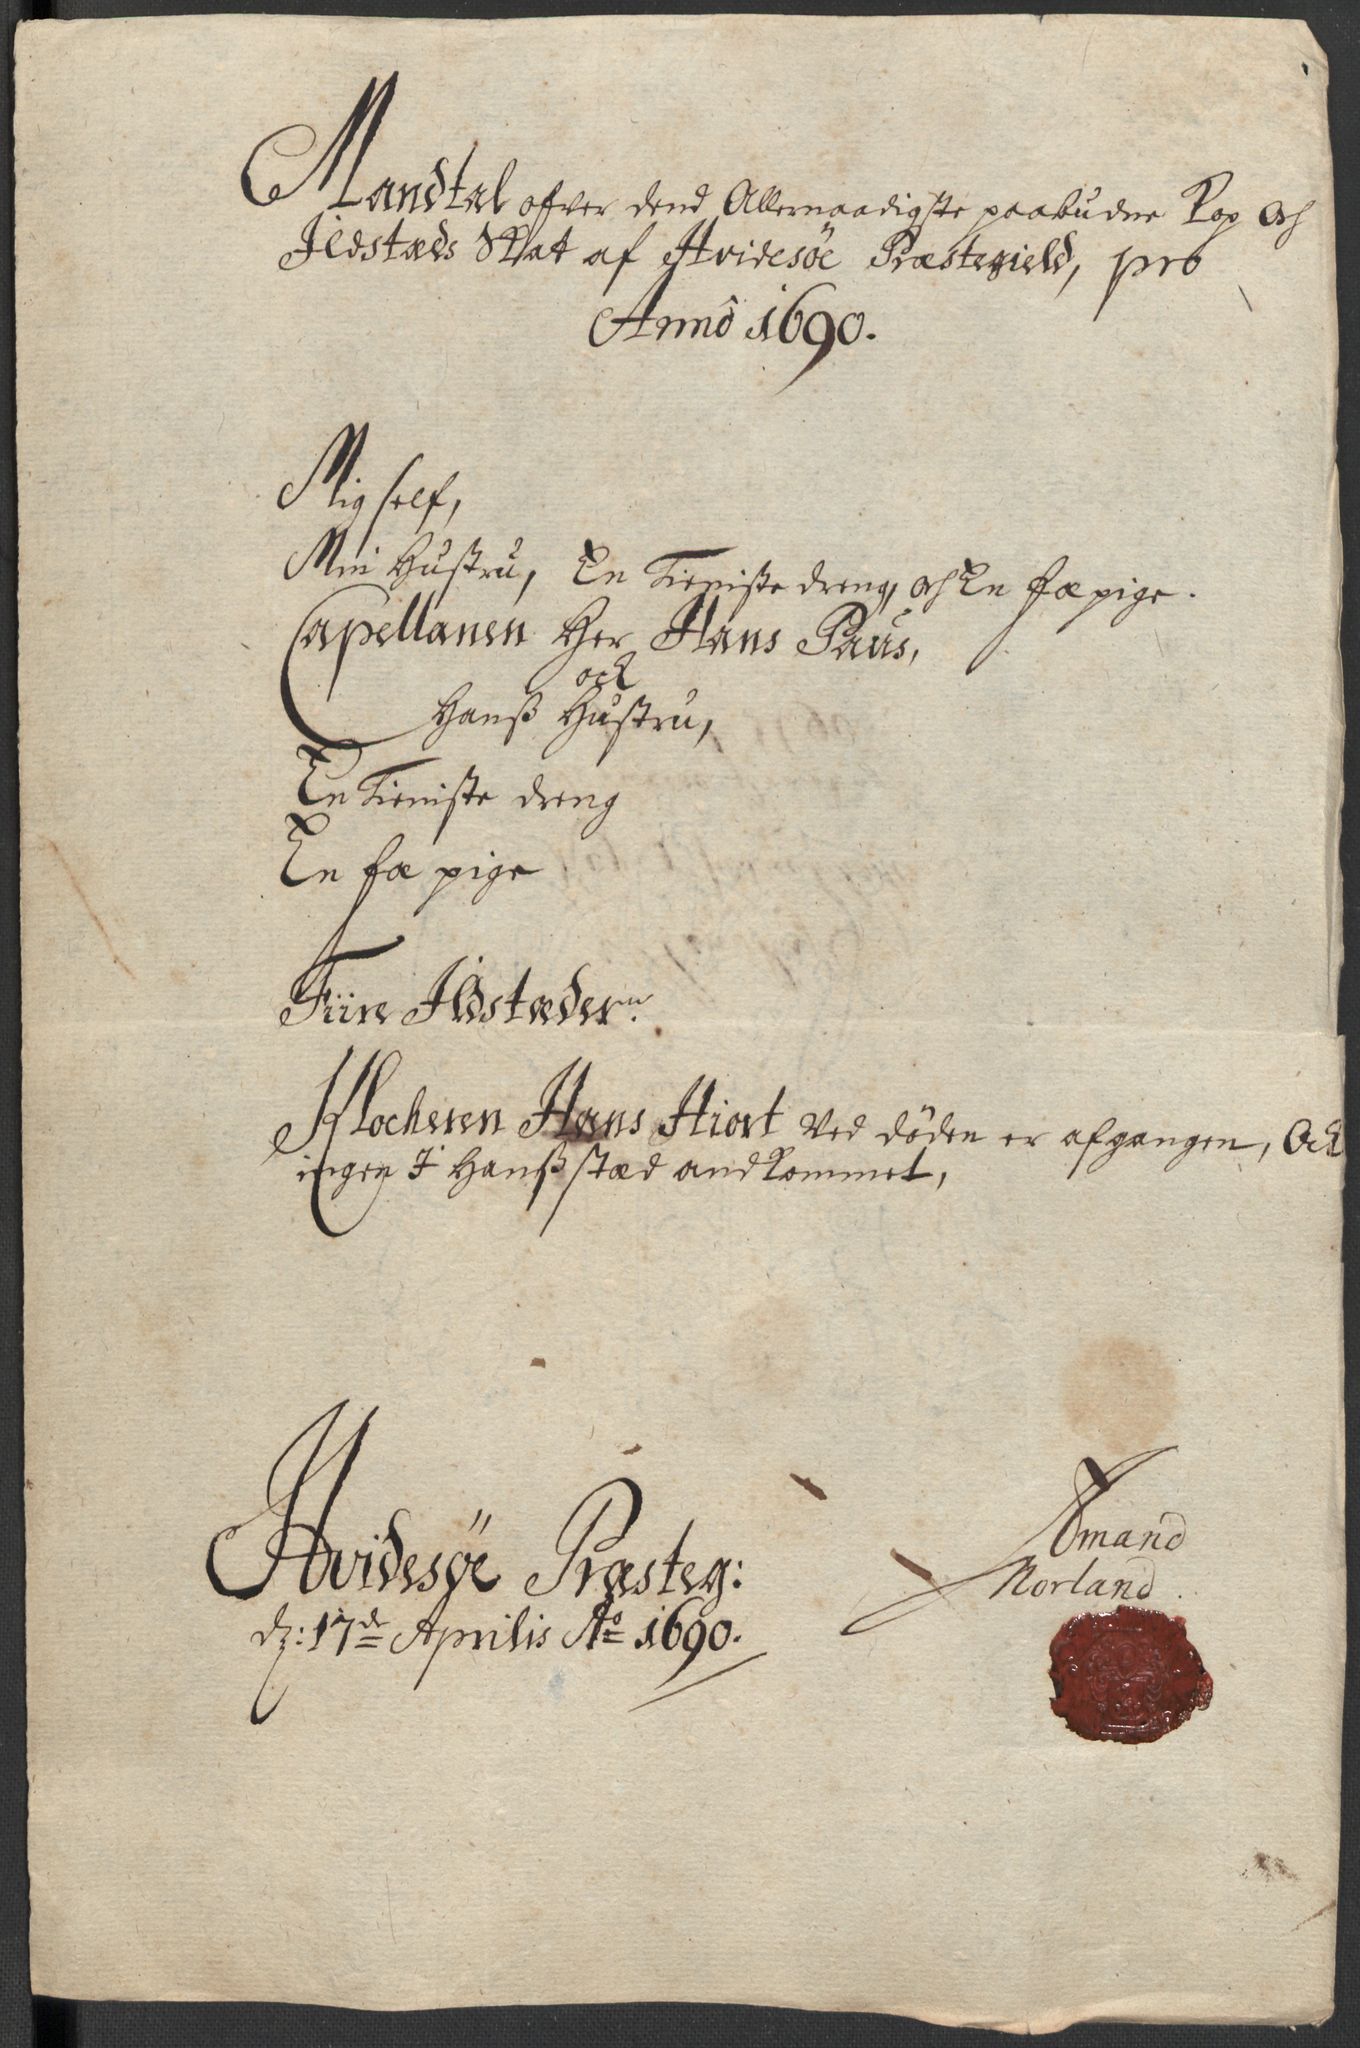 Mandtal ofver dend Allernaadigste paabudne Kop och
Ildstæds Skat af Hvidesøe Præstegield, pro
Anno 1690.
Mig self,
Min Hustru, En Tieniste dreng, och En fæ pige.
Capellanen Her Hans Paus,
ock
Hanß Hustru,
En Tieniste dreng
En fæ pige
Fiire Ildstæder
Klocheren Hans Hiort ved døden er afgangen, Ock
ingen I Hanß stæd andkommet,
Hvidesøe Præsteg:
d: 17de Aprilis Ao 1690.
Amand
Norland.